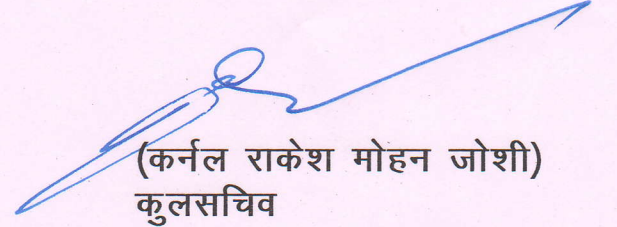 (कर्नल राकेश मोहन जोशी)
कुलसचिव